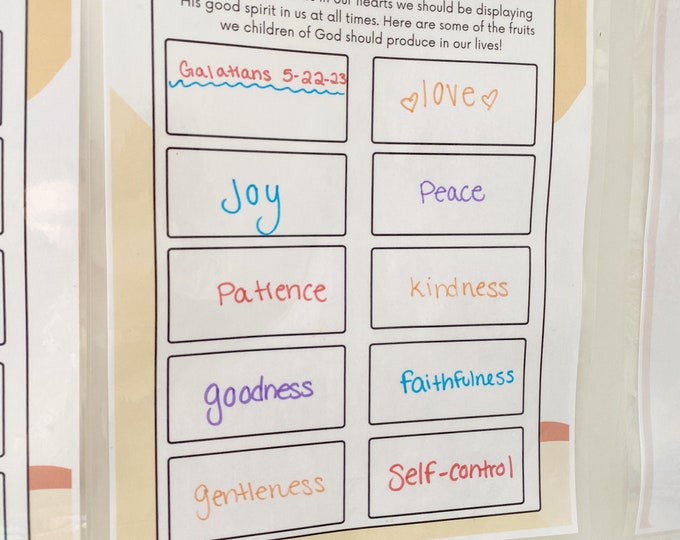 in our hearts we should be displaying
His good spirit in us at all times. Here are some of the fruits
we children of God should produce in our lives!
Galatians 5-22-23
love
Joy
Peace
Patience
kindness
goodness
faithfulness
gentleness
Self-control